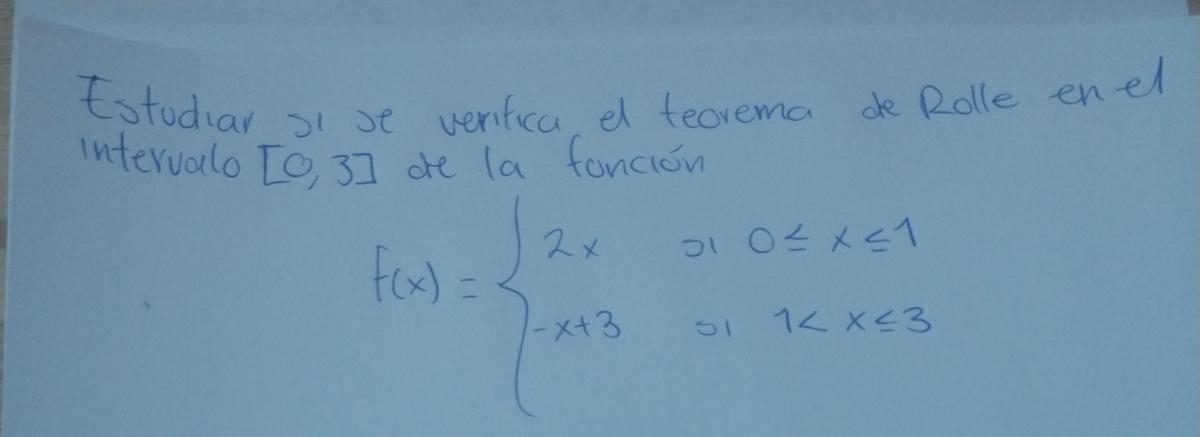 Estudiar si se verifica el teorema de Rolle en el
intervalo [0, 3] de la función
f(x) = { 2x si 0 ≤ x ≤ 1
-x+3 si 1 < x ≤ 3